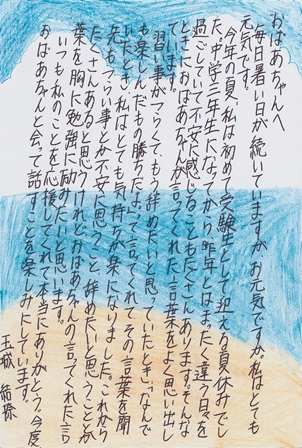 おばあちゃんへ
毎日暑い日が続いていますが、お元気ですか。私はとても
元気です。
今年の夏、私は初めて受験生として迎える夏休みでし
た。中学三年生になってから昨年とはまったく違う日々を
過ごしていて不安に感じることもたくさんあります。そんな
ときにおばあちゃんが言ってくれた言葉をよく思い出し
ています。
習い事がつらくて、もう辞めたいと思っていたとき、「なんで
も楽しんだもの勝ちだよ。」って言ってくれて、その言葉を聞
いたとき、私はとても気持ちが楽になりました。これから
先もつらい事とか不安に思うこと、辞めたいと思うことが
たくさんあると思うけれどおばあちゃんの言ってくれた言
葉を胸に勉強に励みたいと思います。
いつも私のことを応援してくれて本当にありがとう。今度
おばあちゃんと会って話すことを楽しみにしています。
玉城 結